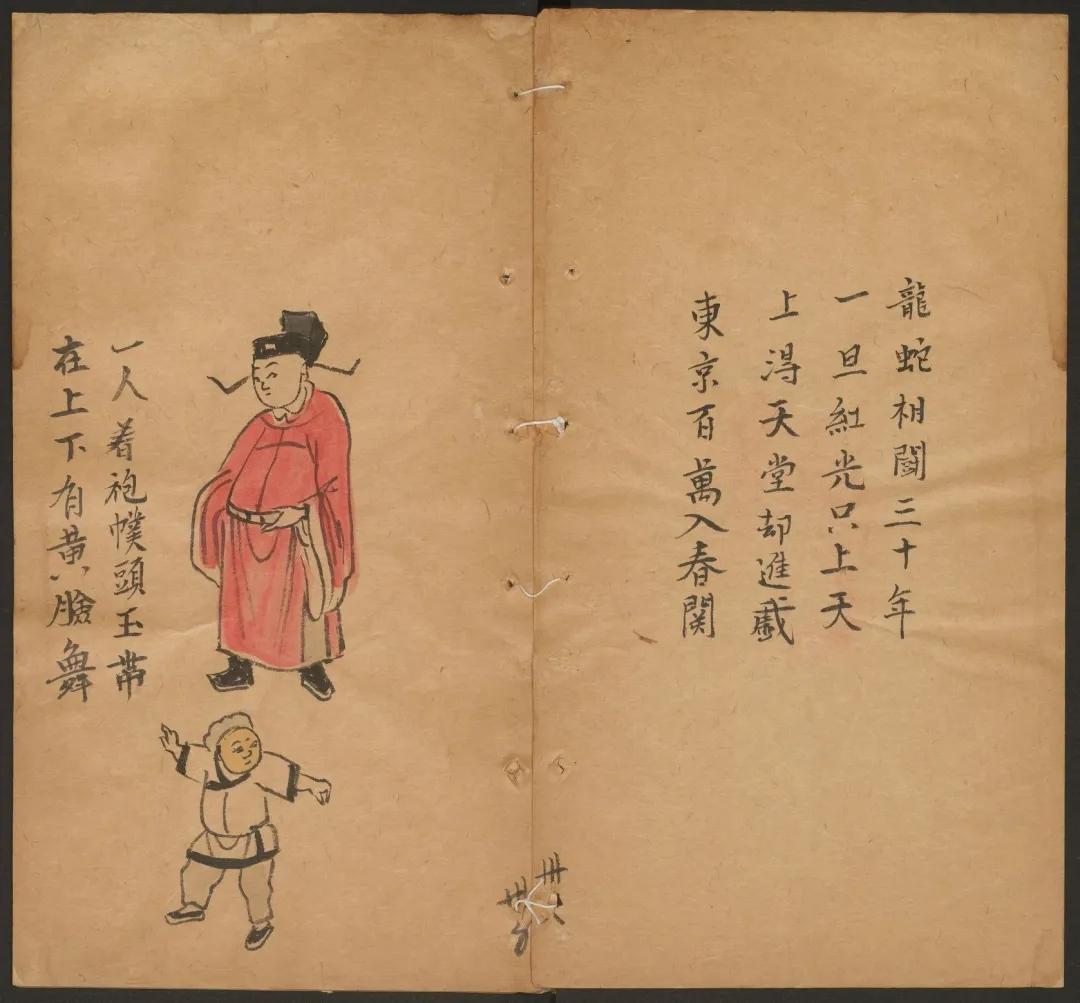 龍蛇相鬪三十年
一旦紅光只上天
上淂天堂却進戱
東京百萬入春関
一人着袍幞頭玉帶
在上下有黄臉舞
卅六